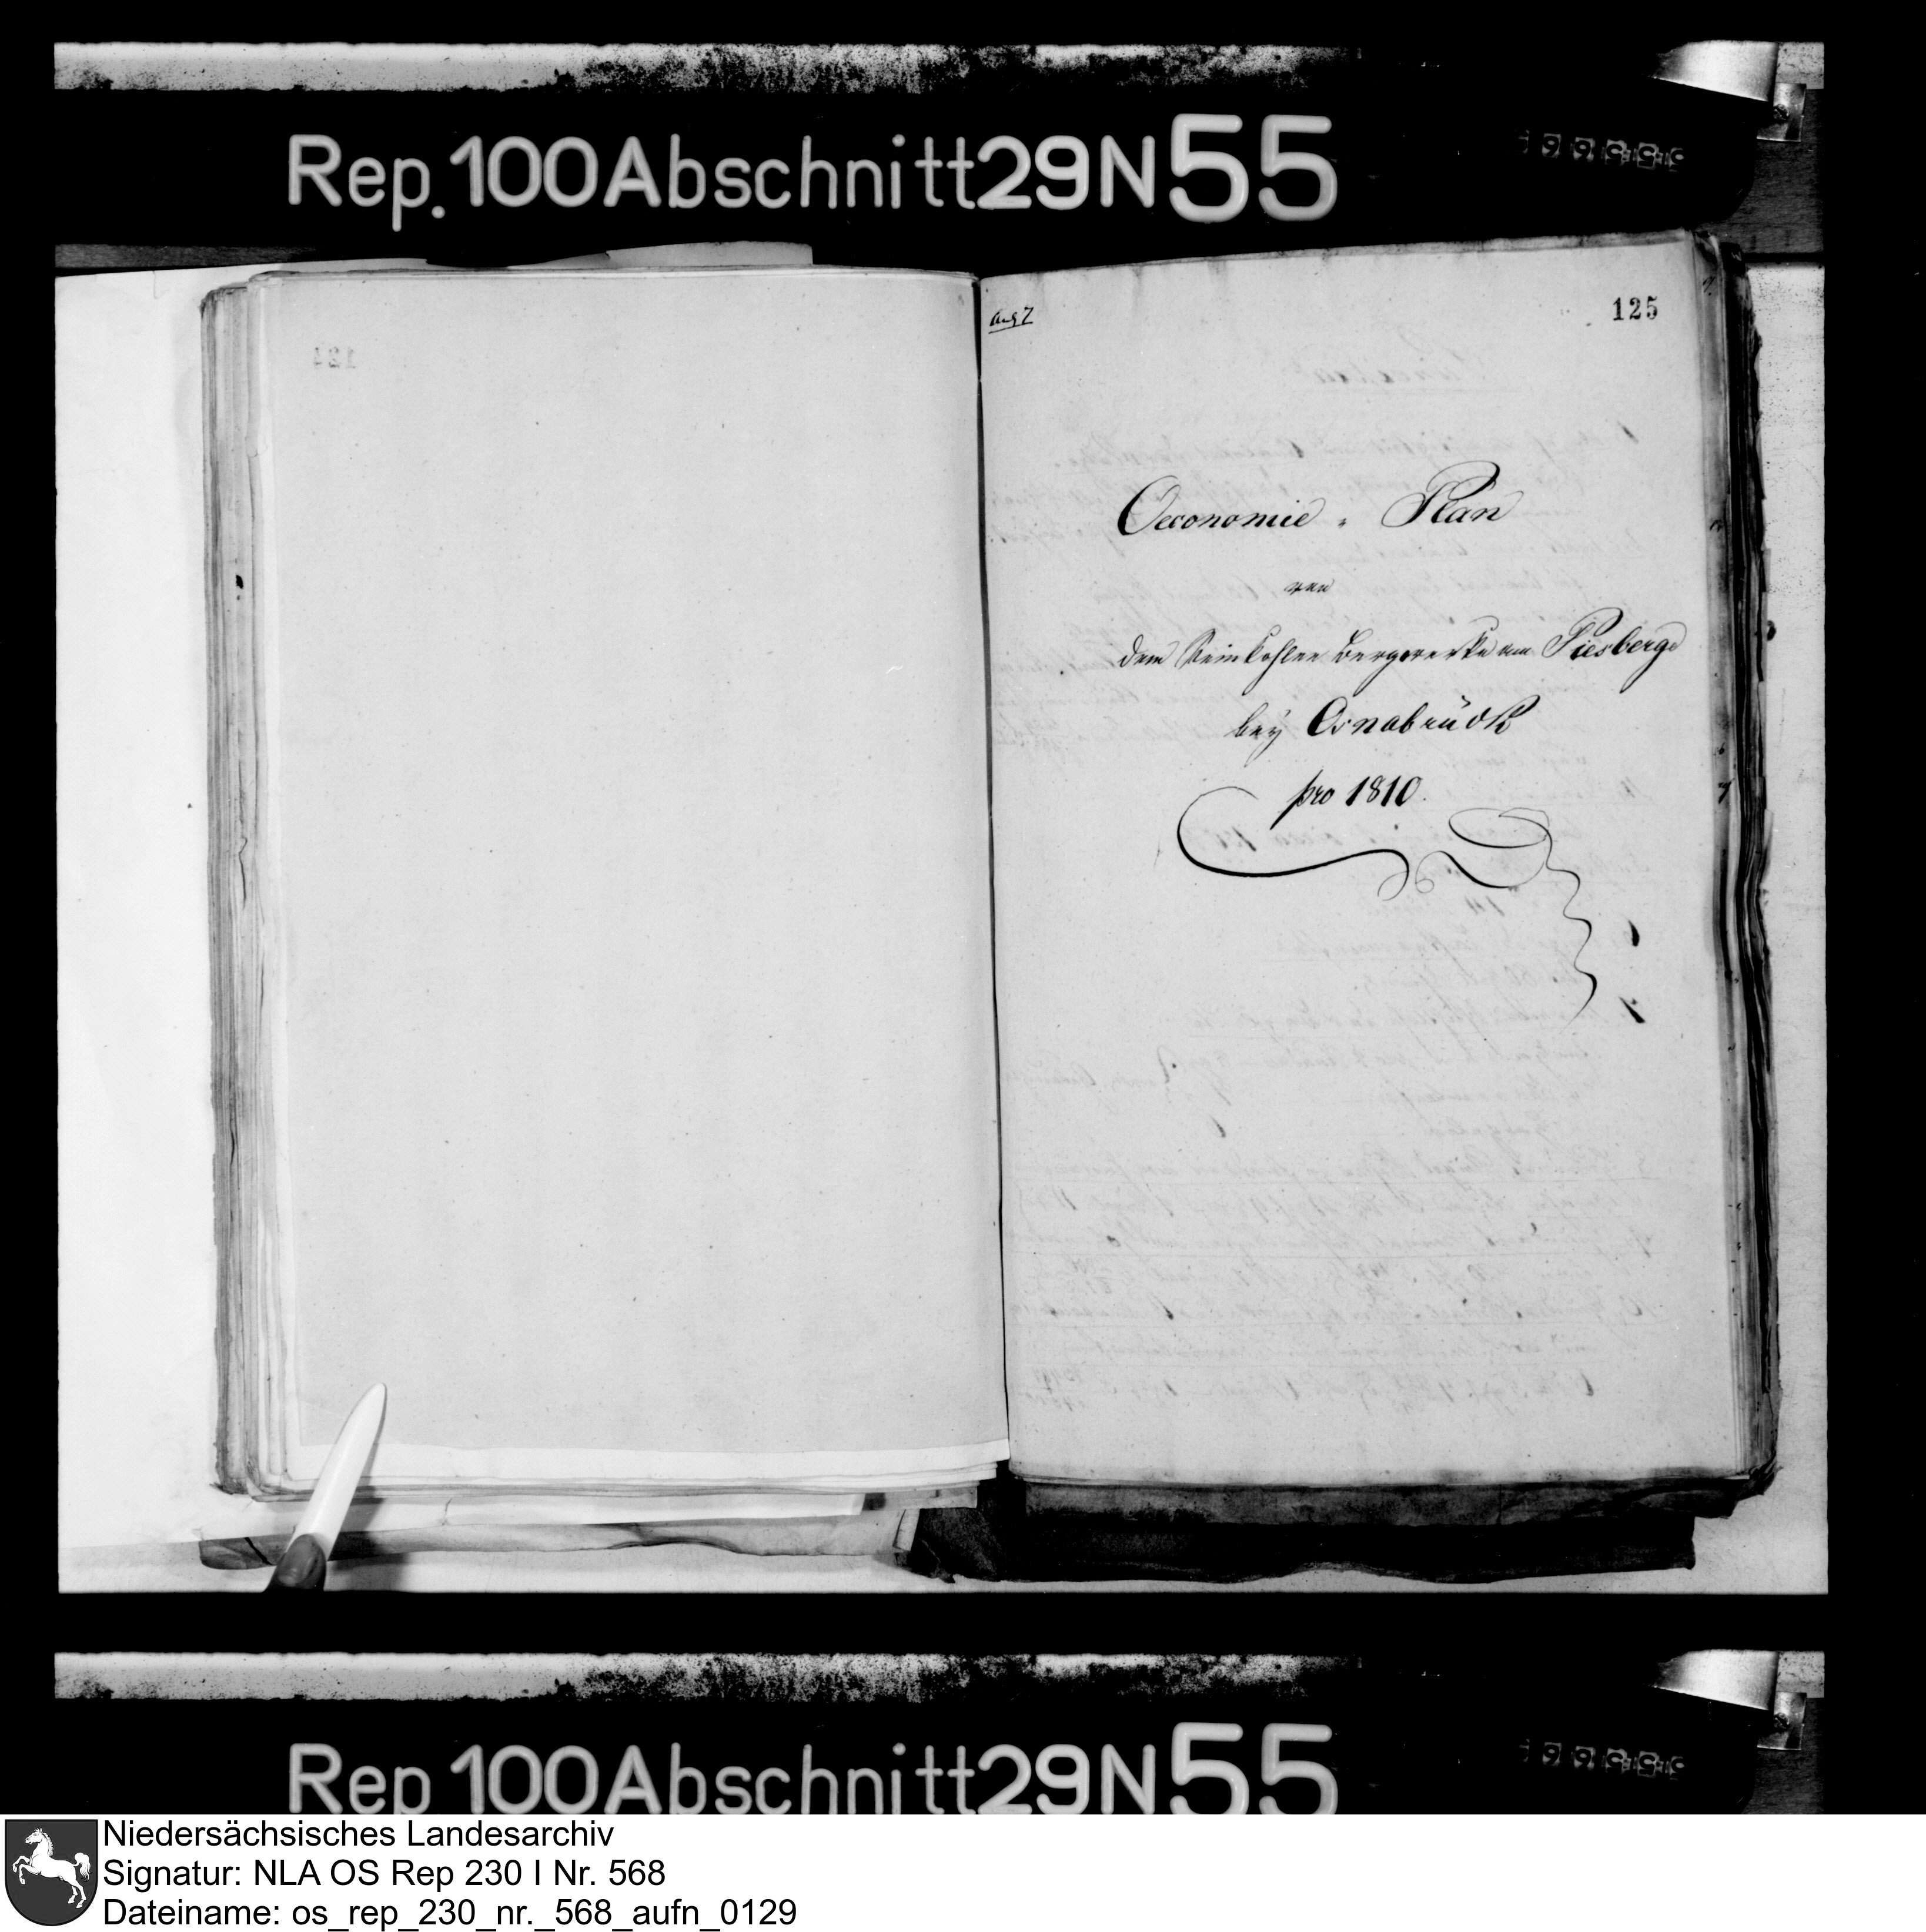 Rep. 100 Abschnitt 29 N 55
124
125
Oeconomie - Plan
von
dem Steinkohlen Bergwerke am Piesberge
bey Osnabrück
pro 1810.
Rep 100 Abschnitt 29 N 55
Niedersächsisches Landesarchiv
Signatur: NLA OS Rep 230 I Nr. 568
Dateiname: os_rep_230_nr._568_aufn_0129